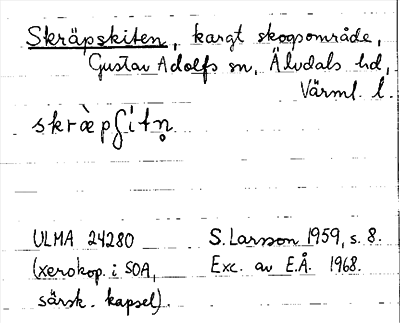 Skräpskiten, kargt skogsområde,
Gustav Adolfs sn, Älvdals hd,
Värml. l.
skræ̀pʃítn̥
ULMA 24280 S. Larsson 1959, s. 8.
(xerokop. i SOA, Exc. av E.Å. 1968.
särsk. kapsel).